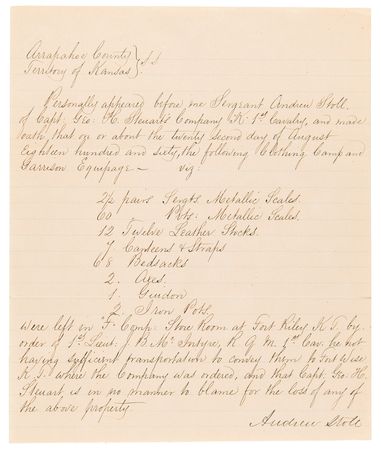 Arrapahoe County } SS
Territory of Kansas }
Personally appeared before me Sergeant Andrew Stoll
of Capt. Geo: H. Steuarts Company "K" 1st Cavalry, and made
oath, that on or about the twenty second day of August
Eighteen hundred and sixty, the following Clothing Camp and
Garrison Equipage — viz:
2½ pairs Sergts Metallic Scales.
60 Pvts: Metallic Scales.
12 Twelve Leather Stocks.
7 Canteens & Straps
68 Bedsacks
2. Axes.
1. Guidon
2. Iron Pots.
were left in "F" Comp: Store Room at Fort Riley K.T. by
order of 1st Lieut. J. B. McIntyre, R Q M. 1st Cav. he not
having sufficient transportation to convey them to Fort Wise
K.T. where the Company was ordered, and that Capt. Geo. H.
Steuart, is in no manner to blame for the loss of any of
the above property.
Andrew Stoll